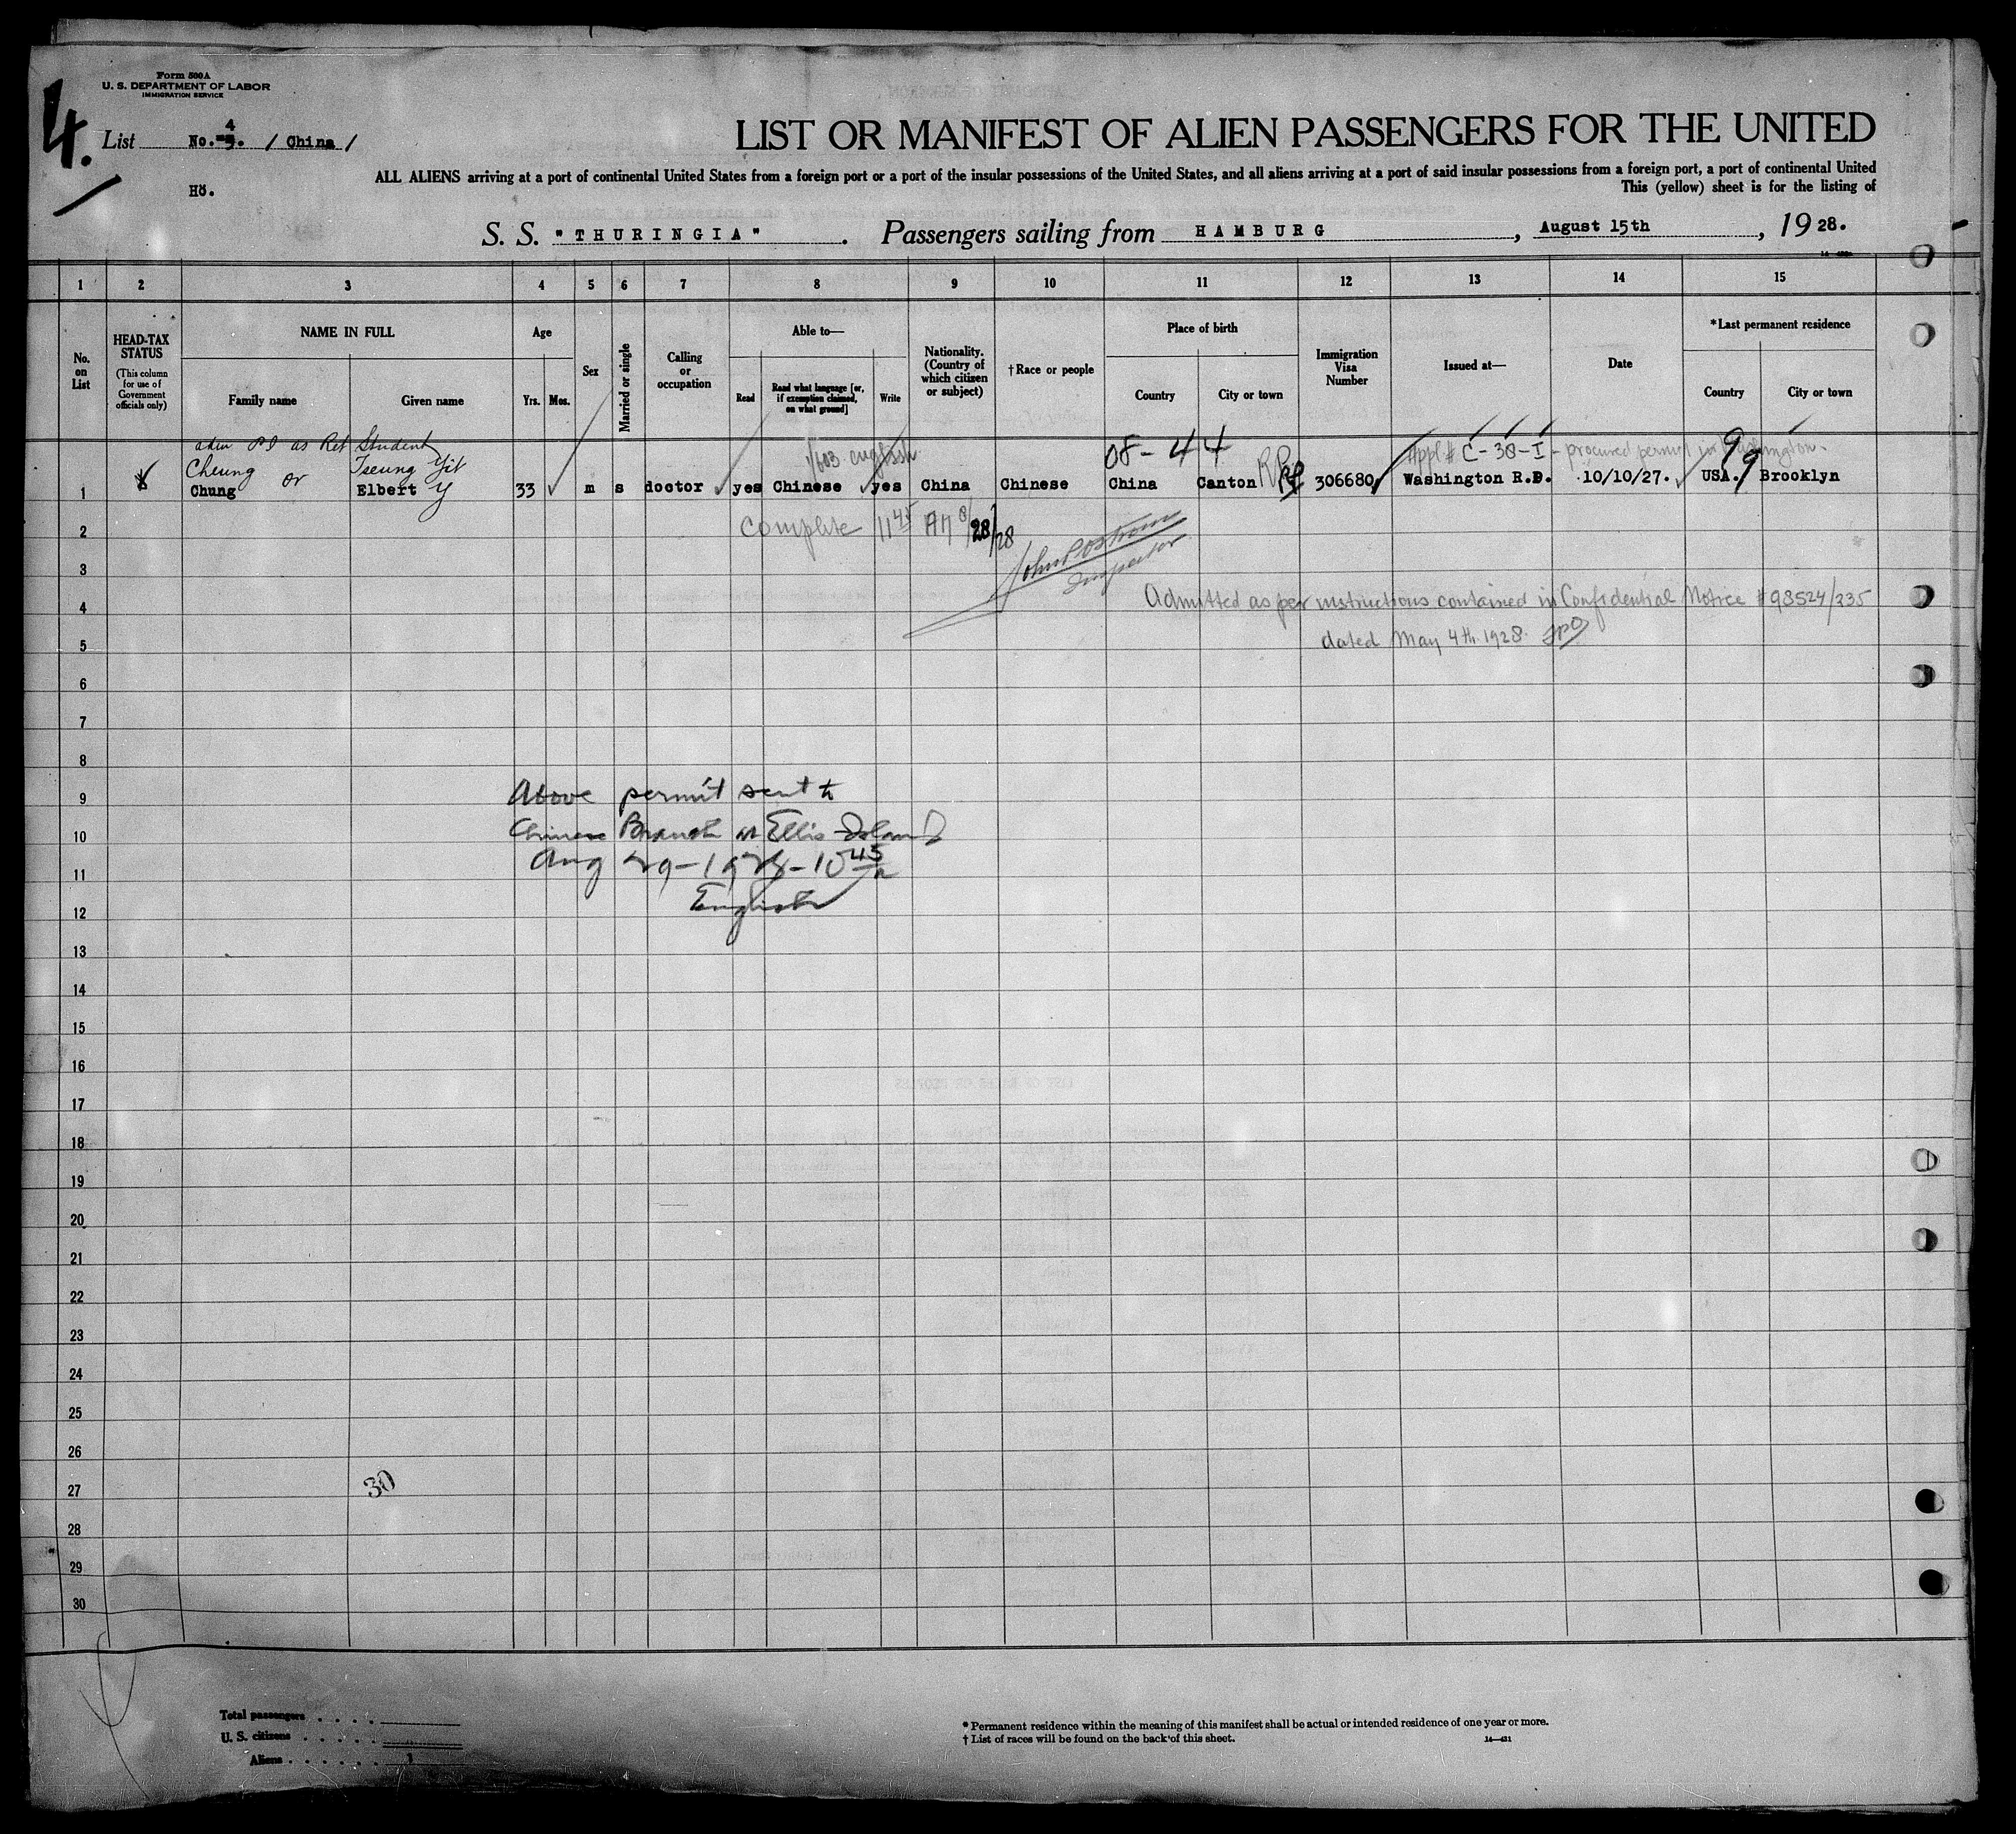 Form 500 A
U. S. DEPARTMENT OF LABOR
IMMIGRATION SERVICE
4.
List No. 4 / China /
Hö.
LIST OR MANIFEST OF ALIEN PASSENGERS FOR THE UNITED
ALL ALIENS arriving at a port of continental United States from a foreign port or a port of the insular possessions of the United States, and all aliens arriving at a port of said insular possessions from a foreign port, a port of continental United
This (yellow) sheet is for the listing of
S. S. "THURINGIA". Passengers sailing from HAMBURG, August 15th, 1928.
1 2 3 4 5 6 7 8 9 10 11 12 13 14 15
No. on List
HEAD-TAX STATUS
(This column for use of Government officials only)
NAME IN FULL
Family name
Given name
Age
Yrs. Mos.
Sex
Married or single
Calling or occupation
Able to—
Read
Read what language [or, if exemption claimed, on what ground]
Write
Nationality. (Country of which citizen or subject)
†Race or people
Place of birth
Country
City or town
Immigration Visa Number
Issued at—
Date
*Last permanent residence
Country
City or town
adm as Ret Student
Cheung or Tseung Yit
1603 English
08-44
Appl# C-38-I - procured permit in Washington.
99
1 Chung Elbert Y 33 m s doctor yes Chinese yes China Chinese China Canton 306680 Washington R.D. 10/10/27. USA. Brooklyn
2
Complete 11 45 AM 8/28/28
John P Ostrom
Inspector
3
4
Admitted as per instructions contained in Confidential Notice #93524/335
dated May 4th 1928 JPO
5
6
7
8
9
Above permit sent to
10
Chinese Branch at Ellis Island
11
Aug 29-1928-10 45 a
12
English
13
14
15
16
17
18
19
20
21
22
23
24
25
26
27
30
28
29
30
Total passengers
U. S. citizens
Aliens 1
* Permanent residence within the meaning of this manifest shall be actual or intended residence of one year or more.
† List of races will be found on the back of this sheet.
14—421